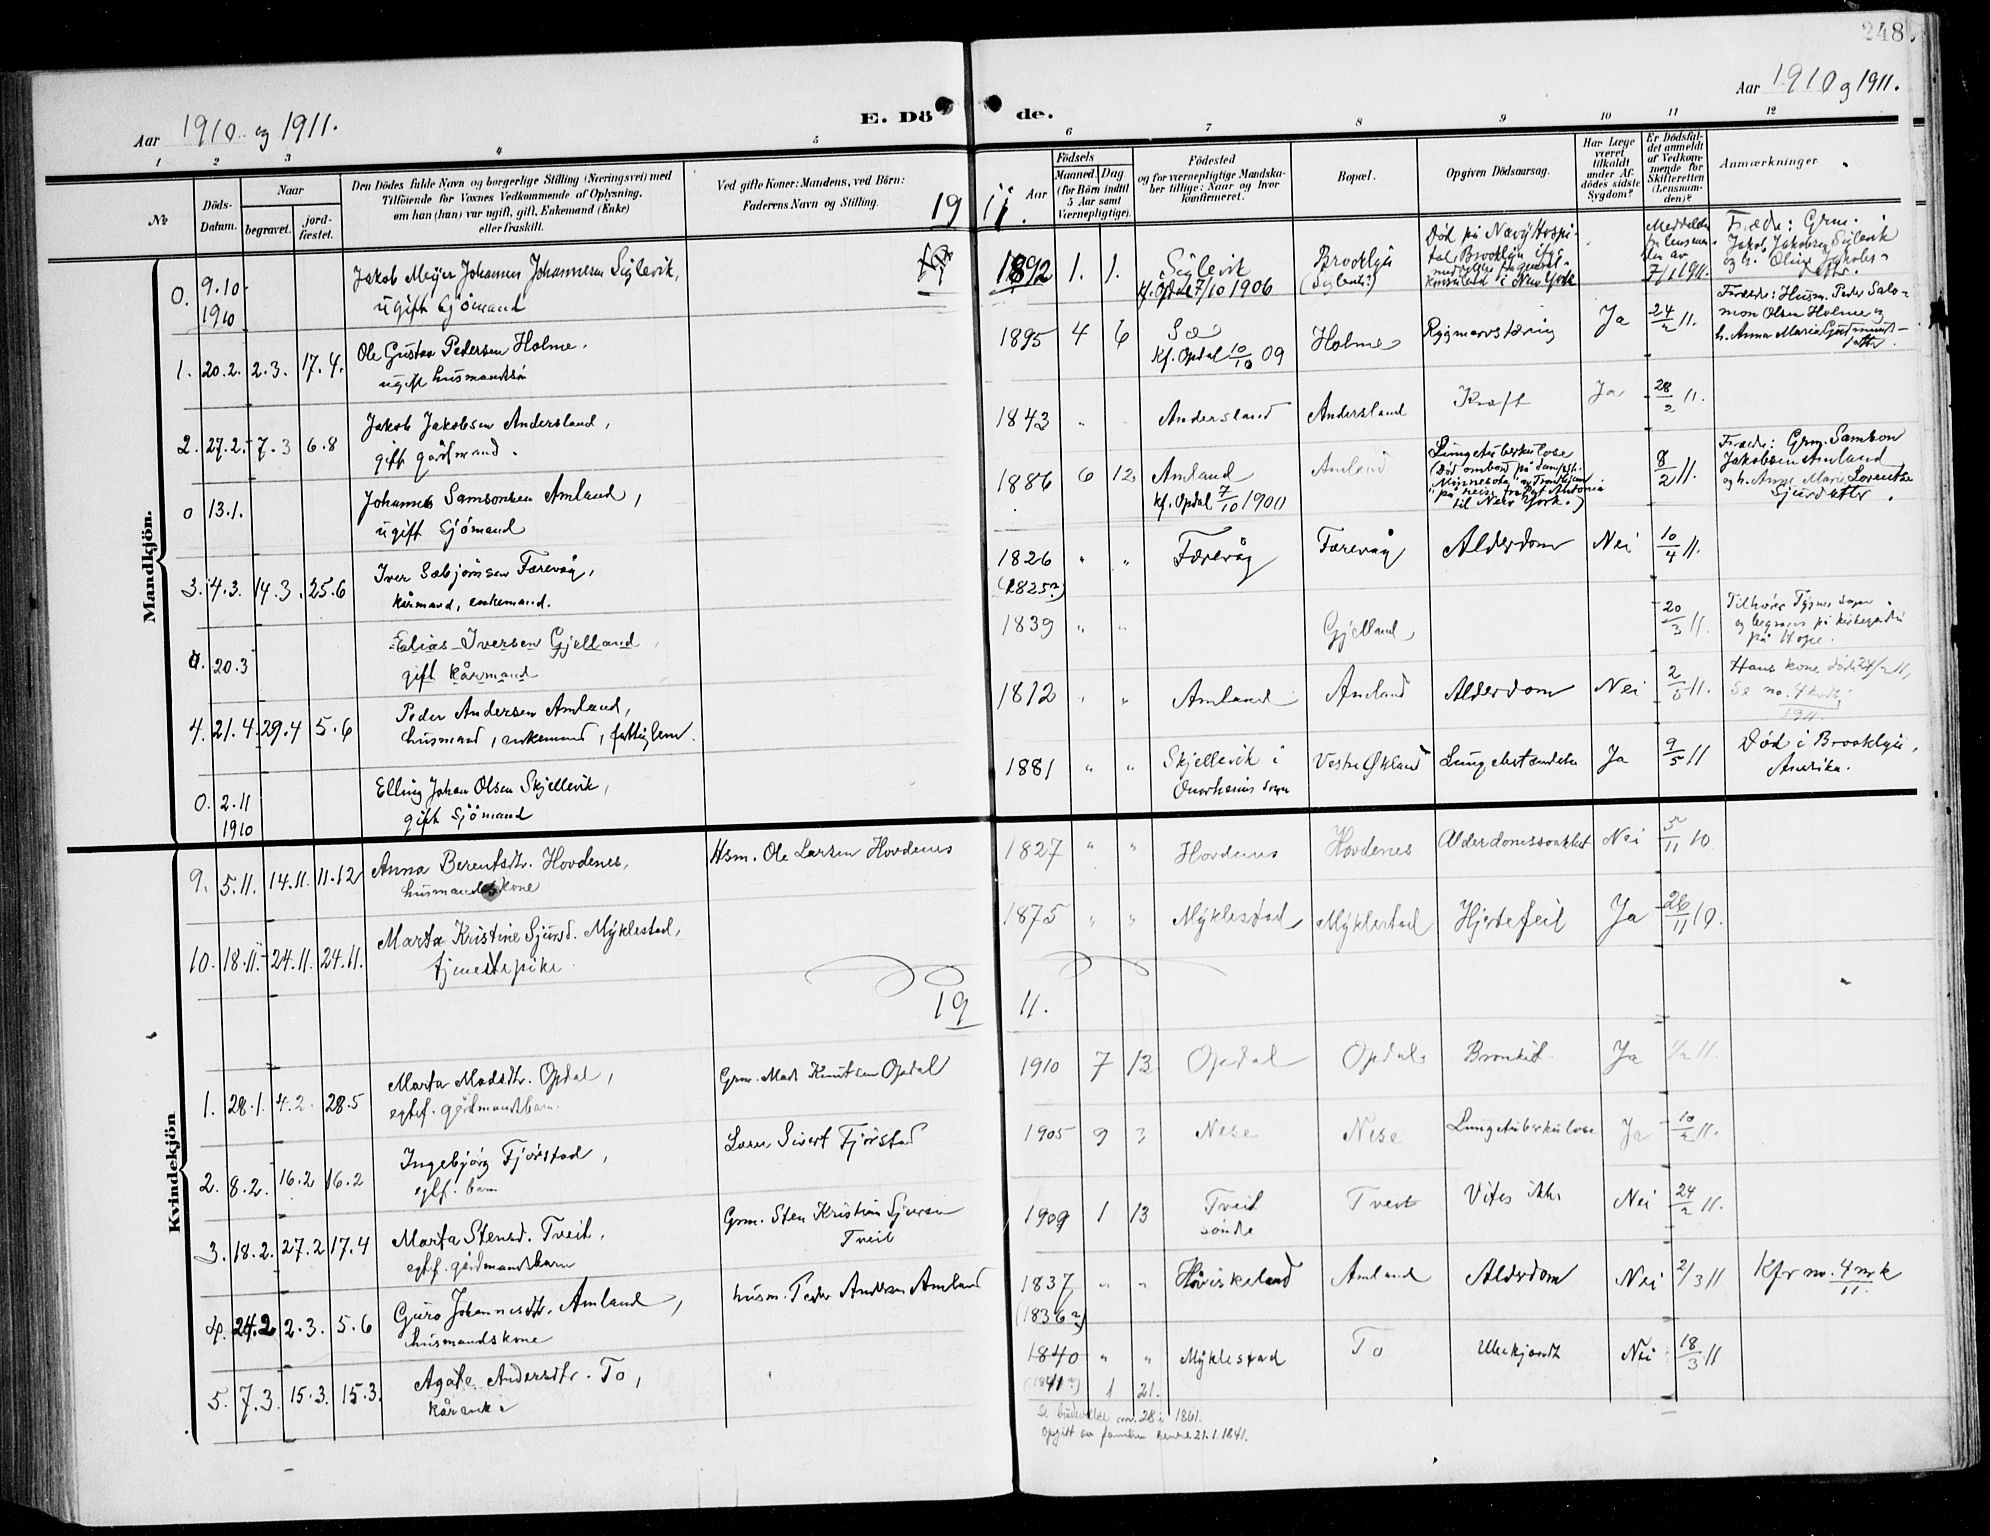 248
Aar 1910 og 1911.
E. Dö
de.
Aar 1910 og 1911.
1 2 3 4 5 6 7 8 9 10 11 12
No
Döds-
Datum.
Naar
begravet.
jord-
fæstet.
Den Dödes fulde Navn og borgerlige Stilling (Næringsvei) med
Tilföiende for Voxnes Vedkommende af Oplysning,
om han (hun) var ugift, gift, Enkemand (Enke)
eller fraskilt.
Ved gifte Koner: Mandens, ved Börn:
Faderens Navn og Stilling.
Födsels
Aar
Maaned
Dag
(for Börn indtil
5 Aar samt
Værnepligtige).
Födested
og for værnepligtige Mandska-
ber tillige: Naar og hvor
konfirmeret.
Bopæl.
Opgiven Dödsaarsag.
Har Læge
været
tilkaldt
under Af-
dödes sidste
Sygdom?
Er Dödsfal-
det anmeldt
af Vedkom-
mende for
Skifteretten
(Lensman-
den)?
Anmærkninger
19 11.
Mandkjön.
0. 9.10 1910
Jakob Meyer Johannes Johannesen Siglevik,
ugift Sjömand
1892 1. 1.
Siglevik
Kf. Opdal 7/10 1906
Brooklyn
Död på Navy Hospi-
tal Brooklyn
konsulat i New York
7/1 1911.
Jakob Jakobsen Siglevik
1. 20.2. 2.3. 17.4.
Ole Gustav Pedersen Holme.
ugift husmandssön
1895 4 6
Kf. Opdal 10/10 09
Holme
Rygmarvstæring
Ja
24/2 11.
Foræld: Husm. Peder Salo-
mon Olsen Holme og
h. Anna Maria Gudmunds-
datter.
2. 27.2. 7.3 6.8
Jakob Jakobsen Andersland,
gift gårdmand.
1843
Andersland
Andersland
Kræft
Ja
28/2 11.
0 13.1.
Johannes Samsonsen Amland,
ugift Sjömand
1886 6 12
Amland
Kf. Opdal 7/10 1900
Amland
Lungetuberkulose
(Död ombord på
"Minnesota"
til New York.)
8/2 11.
Foræld: Grm. Samson
Jakobsen Amland
og h. Anne Marie Lorentse
Sjursdatter.
3. 4.3. 14.3. 25.6
Iver Sæbjörnsen Færevåg,
kårmand, enkemand.
1826 " "
(1825?)
Færevåg
Færevåg
Alderdom
Nei
10/4 11.
0. 20.3
Elias Iversen Gjelland,
gift kårmand
1839 " "
Gjelland
20/3 11.
Tilhörer Tysnes sogn
og begraves på kirkegården
på Hope.
4. 21.4. 29.4 5.6
Peder Andersen Amland,
husmand, enkemand, fattiglem.
1812 " "
Amland
Amland
Alderdom
Nei
2/5 11.
Hans kone död 24/2 11,
Se no. 4 kvk
1911.
0. 2.11 1910
Elling Johan Olsen Skjellevik,
gift Sjömand
1881 " "
Skjellevik i
Onarheims sogn
Vestre Økland
Lungebetændelse
Ja
9/5 11
Död i Brooklyn,
Amerika.
Kvindekjön
9. 5.11. 14.11. 11.12
Anna Berentsdtr. Hovdenes,
husmandskone
Hsm. Ole Larsen Hovdenes
1827 " "
Hovdenes
Hovdenes
Alderdomssvakhet
Nei
10
10. 18.11. 24.11. 24.11.
Marta Kristine Sjursd. Myklestad,
tjenestepike
1875 " "
Myklestad
Myklestad
Hjertefeil
Ja
26/11 10.
19 11.
1. 28.1. 4.2. 28.5
Marta Madsdtr. Opdal,
egtef. gårdmandsbarn.
Grm. Mads Knutsen Opdal
1910 7 13
Opdal
Opdal
Bronkit.
Ja
1/2 11.
2. 8.2. 16.2 16.2
Ingebjörg Fjörstad,
egtf. barn
Lærer Sivert Fjörstad
1905 9 3
Nese
Nese
Lungetuberkulose
Ja
10/2 11.
3. 18.2. 27.2 17.4
Marta Stensd. Tveit,
egtf. gårdmandsbarn
Grm. Sten Kristian Sjursen
Tveit
1909 1 13
Tveit
söndre
Tveit
Vites ikke
Nei
24/2 11.
4. 24.2 2.3. 5.6
Guro Johannesdtr. Amland,
husmandskone
husm. Peder Andersen Amland
1837 " "
(1836?)
Håviskeland
Amland
Alderdom
Nei
2/3 11
Kfr no. 4 mk
11.
5. 7.3. 15.3. 15.3.
Agate Andersdtr. To,
kårenke
1840 " "
(1841?) 1 21.
Myklestad
To
Ubekjendt
Nei
18/3 11
Se no. 28 i 1861.
opgitt av familien 21.1.1841.